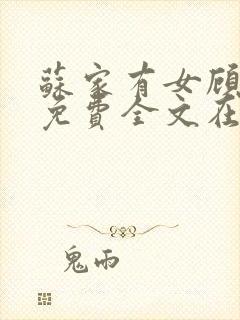 蘇家有女顾
免費全文在
鬼雨